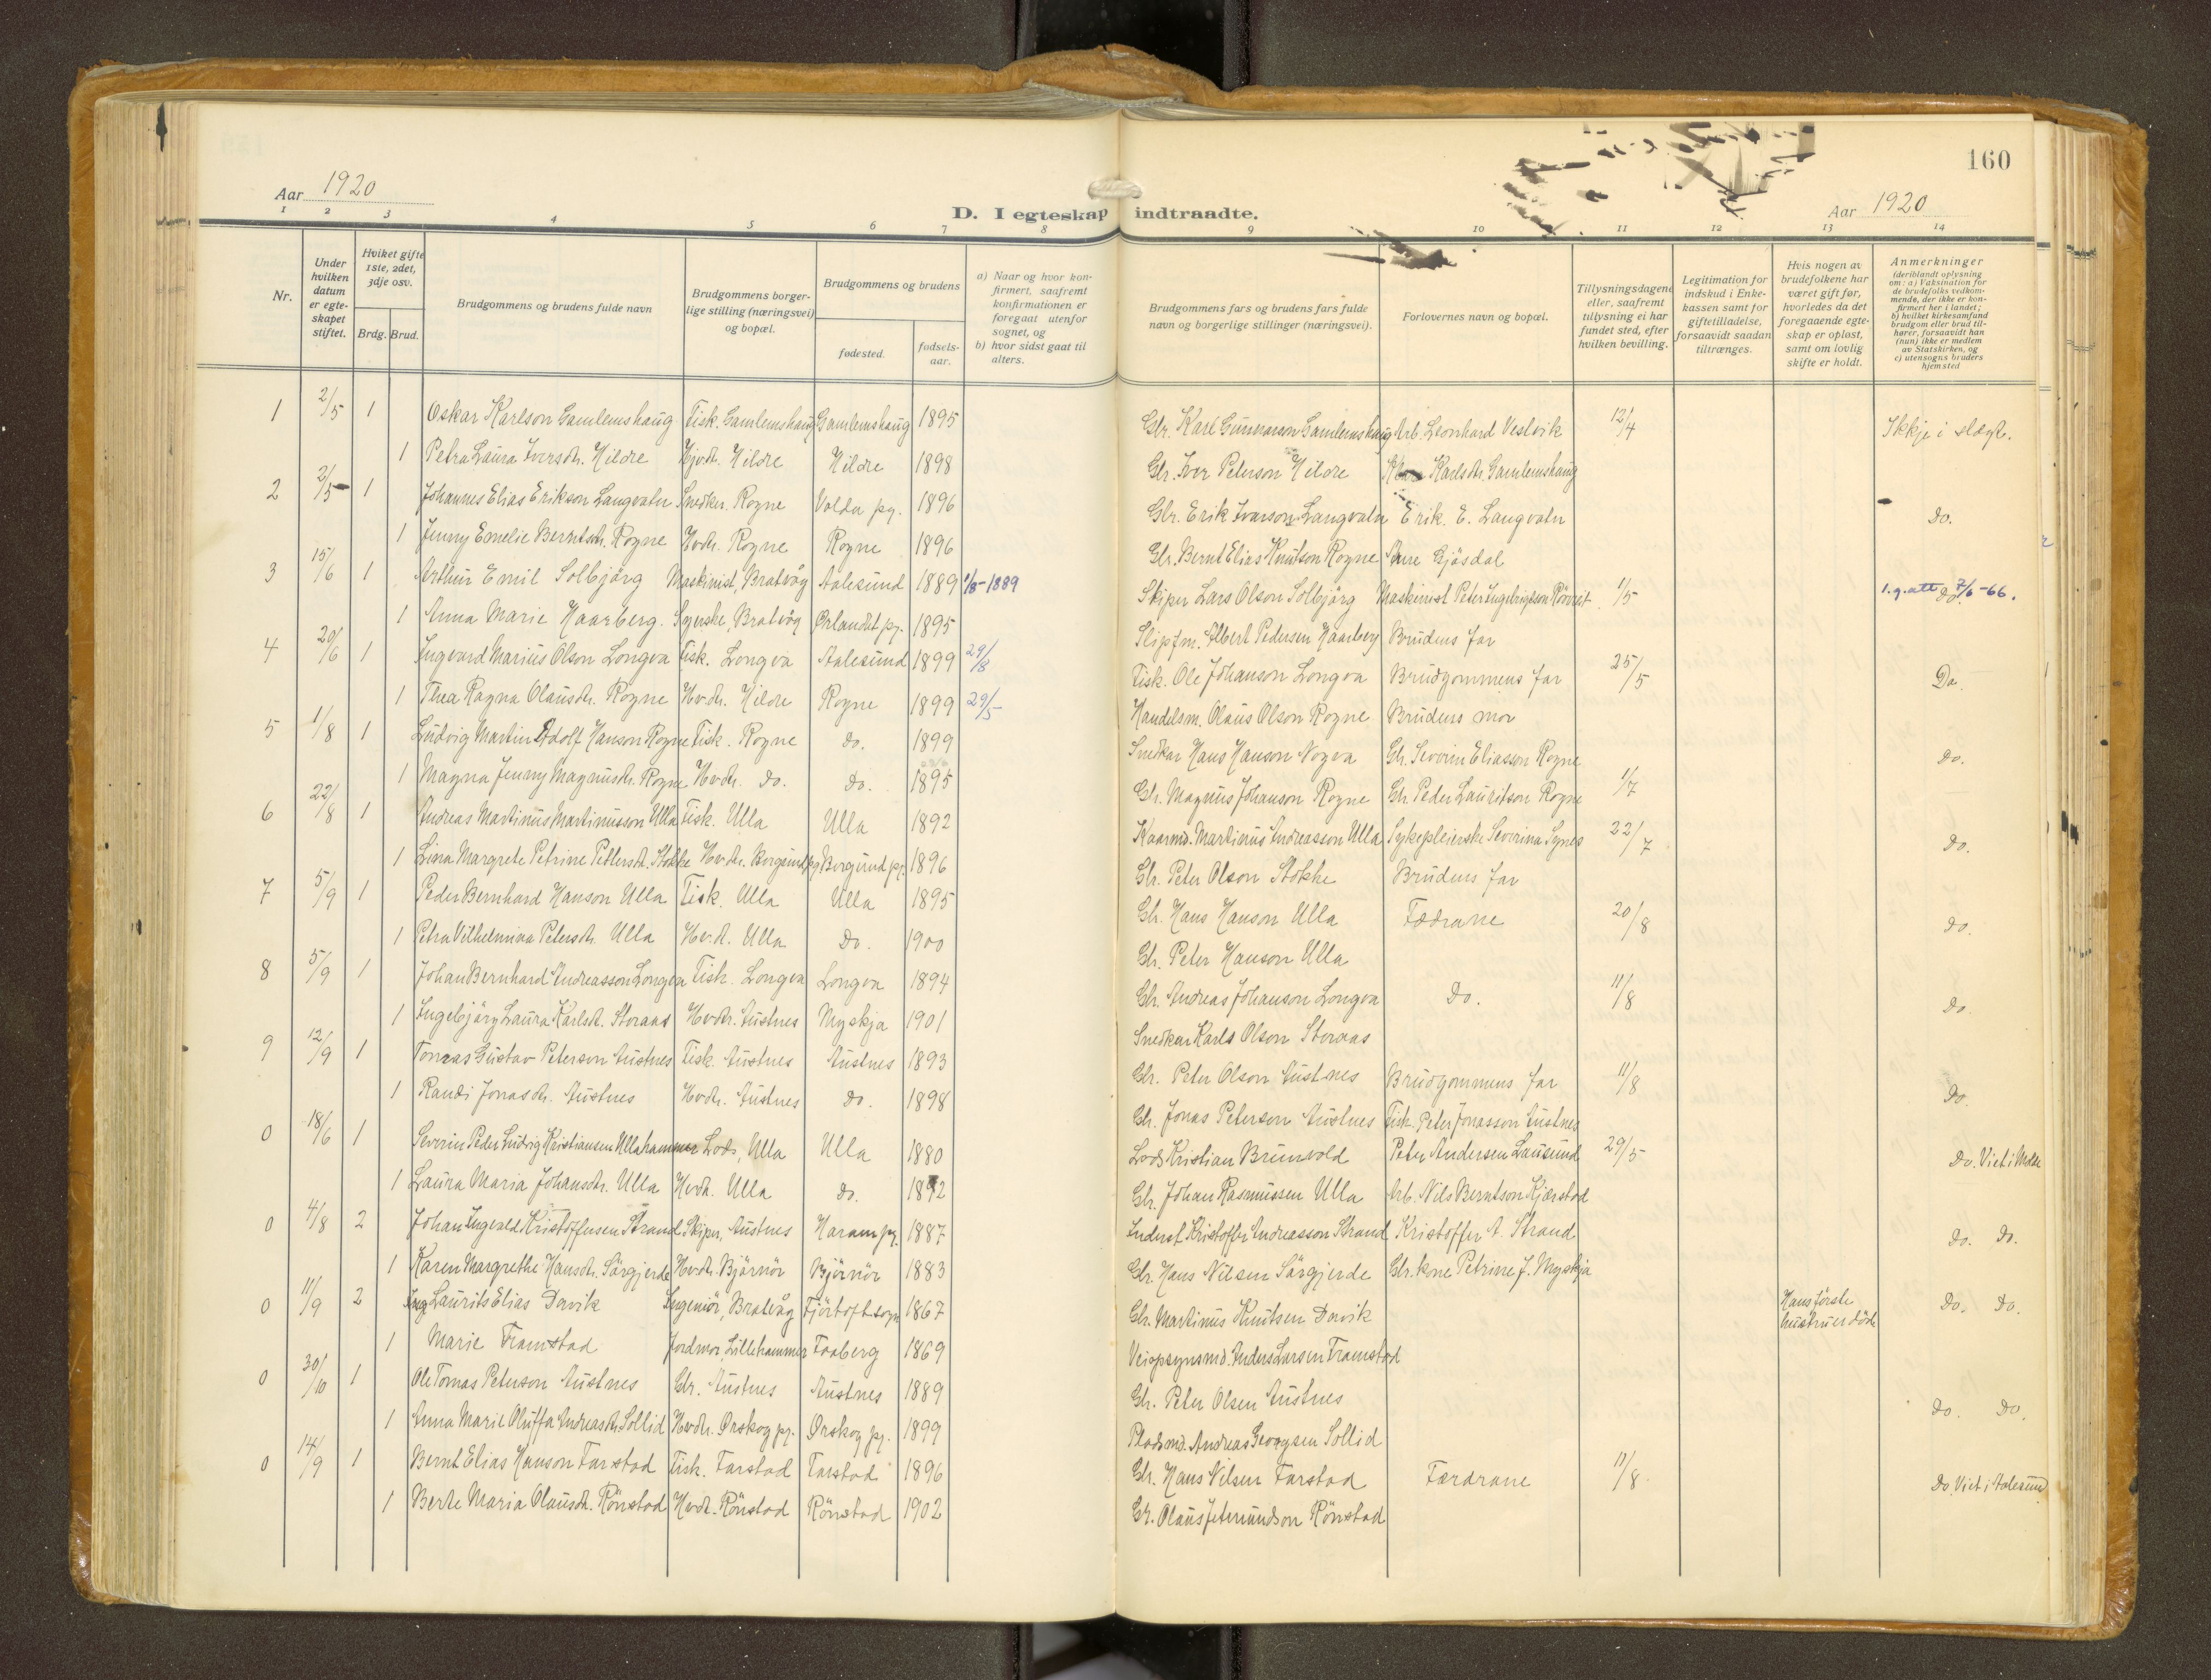 160
Aar 1920
D. I egteskap indtraadte.
Aar 1920
1 2 3 4 5 6 7 8 9 10 11 12 13 14
Nr.
Under hvilken datum er egteskapet stiftet.
Hviket gifte 1ste, 2det, 3dje osv.
Brdg. Brud.
Brudgommens og brudens fulde navn
Brudgommens borgerlige stilling (næringsvei) og bopæl.
Brudgommens og brudens
fødested.
fødselsaar.
a) Naar og hvor konfirmert, saafremt konfirmationen er foregaat utenfor sognet, og
b) hvor sidst gaat til alters.
Brudgommens fars og brudens fars fulde navn og borgerlige stillinger (næringsvei).
Forlovernes navn og bopæl.
Tillysningsdagene eller, saafremt tillysning ei har fundet sted, efter hvilken bevilling.
Legitimation for indskud i Enkekassen samt for giftetilladelse, forsaavidt saadan tiltrænges.
Hvis nogen av brudefolkene har været gift før, hvorledes da det foregaaende egteskap er opløst, samt om lovlig skifte er holdt.
Anmerkninger (deriblandt oplysning om: a) Vaksination for de brudefolks vedkommende, der ikke er konfirmert her i landet; b) hvilket kirkesamfund brudgom eller brud tilhører, forsaavidt han (hun) ikke er medlem av Statskirken, og c) utensogns bruders hjemsted
1 2/5 1 Oskar Karlson Gamlemshaug Fisk. Gamlemshaug Gamlemshaug 1895 Gbr. Karl Gunnarson Gamlemshaug Arb. Leonhard Vestvik 12/4 Ikkje i slægt.
1 Petra Laura Iversdtr. Hildre Hjvdtr. Hildre Hildre 1898 Gbr. Iver Peterson Hildre Karlsdtr. Gamlemshaug
2 2/5 1 Johannes Elias Erikson Langvatn Snedker. Rogne Volda pg. 1896 Gbr. Erik Ivarson Langvatn Erik. E. Langvatn Do.
1 Jenny Emelie Berntsdtr. Rogne Hvdtr. Rogne Rogne 1896 Gbr. Bernt Elias Knutson Rogne Gjösdal
3 15/6 1 Arthur Emil Solbjörg Maskinist, Bratvåg Aalesund 1889 1/8-1889 Skiper Lars Olson Solbjörg Maskinist Peter Ingebrigtson 1/5 1.g.att 7/6-66. do.
1 Anna Marie Haarberg. Syerske, Bratvåg Ørlandet pg. 1895 Slipfm. Albert Pedersen Haarberg Brudens far
4 20/6 1 Ingvard Marius Olson Longva Fisk. Longva Aalesund 1899 29/8 Fisk. Ole Johanson Longva Brudgommens far 25/5 Do.
1 Thea Ragna Olausdtr. Rogne Hvdtr. Hildre Rogne 1899 29/5 Handelsm. Olaus Olson Rogne Brudens mor
5 1/8 1 Ludvig Martin Adolf Hanson Rogne Fisk. Rogne do. 1899 Snedkar Hans Hanson Nogva Gbr. Severin Eliasson Rogne Do.
1 Magna Jenny Magnusdtr. Rogne Hvdtr. do. Do. 1895 Gbr. Magnus Johanson Rogne Gbr Peder Lauritson Rogne 1/7
6 22/8 1 Andreas Martinus Martinusson Ulla Fisk. Ulla Ulla 1892 Kaarmd. Martinus Andreasson Ulla Sykepleierske Severina Synes 22/7 Do.
1 Lina Margrete Petrine Pettersdt. Stokke Hvdtr. Borgund pg. Borgund pg. 1896 Gbr. Peter Olson Stokke Brudens far
7 5/9 1 Peder Bernhard Hanson Ulla Fisk. Ulla Ulla 1895 Gbr. Hans Hanson Ulla Fædrane 20/8 do.
1 Petra Vilhelmina Petersdtr. Ulla Hvdt. Ulla Do. 1900 Gbr. Peter Hanson Ulla
8 5/9 1 Johan Bernhard Andreasson Longva Fisk. Longva Longva 1894 Gbr. Andreas Johanson Longva Do. 11/8 Do.
1 Ingebjörg Laura Karlsdt. Storaas Hvdtr. Austnes Myskja 1901 Snedkar Karls Olson Storaas
9 12/9 1 Tomas Gustav Peterson Austnes Fisk. Austnes Austnes 1893 Gbr. Peter Olson Austnes Brudgommens far 11/8 Do.
1 Randi Jonasdtr. Austnes Hvdtr. Austnes do. 1898 Gbr. Jonas Peterson Austnes Fisk. Peter Jonasson Austnes
0 18/6 1 Severin Peder Ludvig Kristiansen Ullahammer Lods, Ulla Ulla 1880 Lods Kristian Brunvold Peter Andersen Lausund 29/5 Do. Viet i Molde
1 Laura Maria Johansdtr. Ulla Hvdt. Ulla do. 1892 Gbr. Johan Rasmussen Ulla Arb. Nils Berntson Kjærstad
0 4/8 2 Johan Ingvald Kristoffersen Strand Skiper, Austnes Haram pg. 1887 Inderst Kristoffer Andreasson Strand Kristoffer A. Strand do. do.
1 Karen Margrethe Hansdtr. Sörgjerde Hvdtr. Björnör Björnör 1883 Gbr. Hans Nilsen Sörgjerde Gbr. kone Petrine J. Myskja
0 11/9 2 Ing Laurits Elias Dovik Ingeniör, Bratvåg Fjörtoft sogn 1867 Gbr. Martinus Knutsen Dovik Hans förste hustru er död Do. Do.
1 Marie Framstad Jordmor, Lillehammer Faaberg 1869 Veiopsynsmd. Anders Larsen Framstad
0 30/10 1 Ole Tomas Peterson Austnes Gbr. Austnes Austnes 1889 Gbr. Peter Olsen Austnes do. Do.
1 Anna Marie Oluffa Andreasdtr. Sollid Hvdtr. Ørskog pg. Ørskog pg. 1899 Pladsmd. Andreas Georgsen Sollid
0 14/9 1 Bernt Elias Hanson Farstad Fisk. Farstad Farstad 1896 Gbr. Hans Nilsen Farstad Færdrane 11/8 Do. Viet i Aalesund
1 Berte Maria Olausdt. Rönstad Hvdt. Rönstad Rönstad 1902 Gbr. Olaus Jetmundson Rönstad